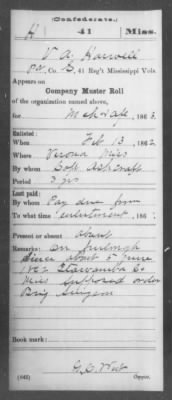 (Confederate.)
H 41 Miss.
V A Harwell
Co. 41 Reg't Mississippi Vols.
Appears on
Company Muster Roll
of the organization named above,
for Mch & Apl, 1863.
Enlisted:
When Feb 13, 1862
Where Verona Miss
By whom Capt Ashcraft
Period 3 yrs
Last paid:
By whom Pay due from
To what time enlistment, 186
Present or absent absent
Remarks: On furlough
since about 1st June
1862 Itawamba Co
Miss supposed order
Brig Surgeon
Book mark:
(642) Copyist.